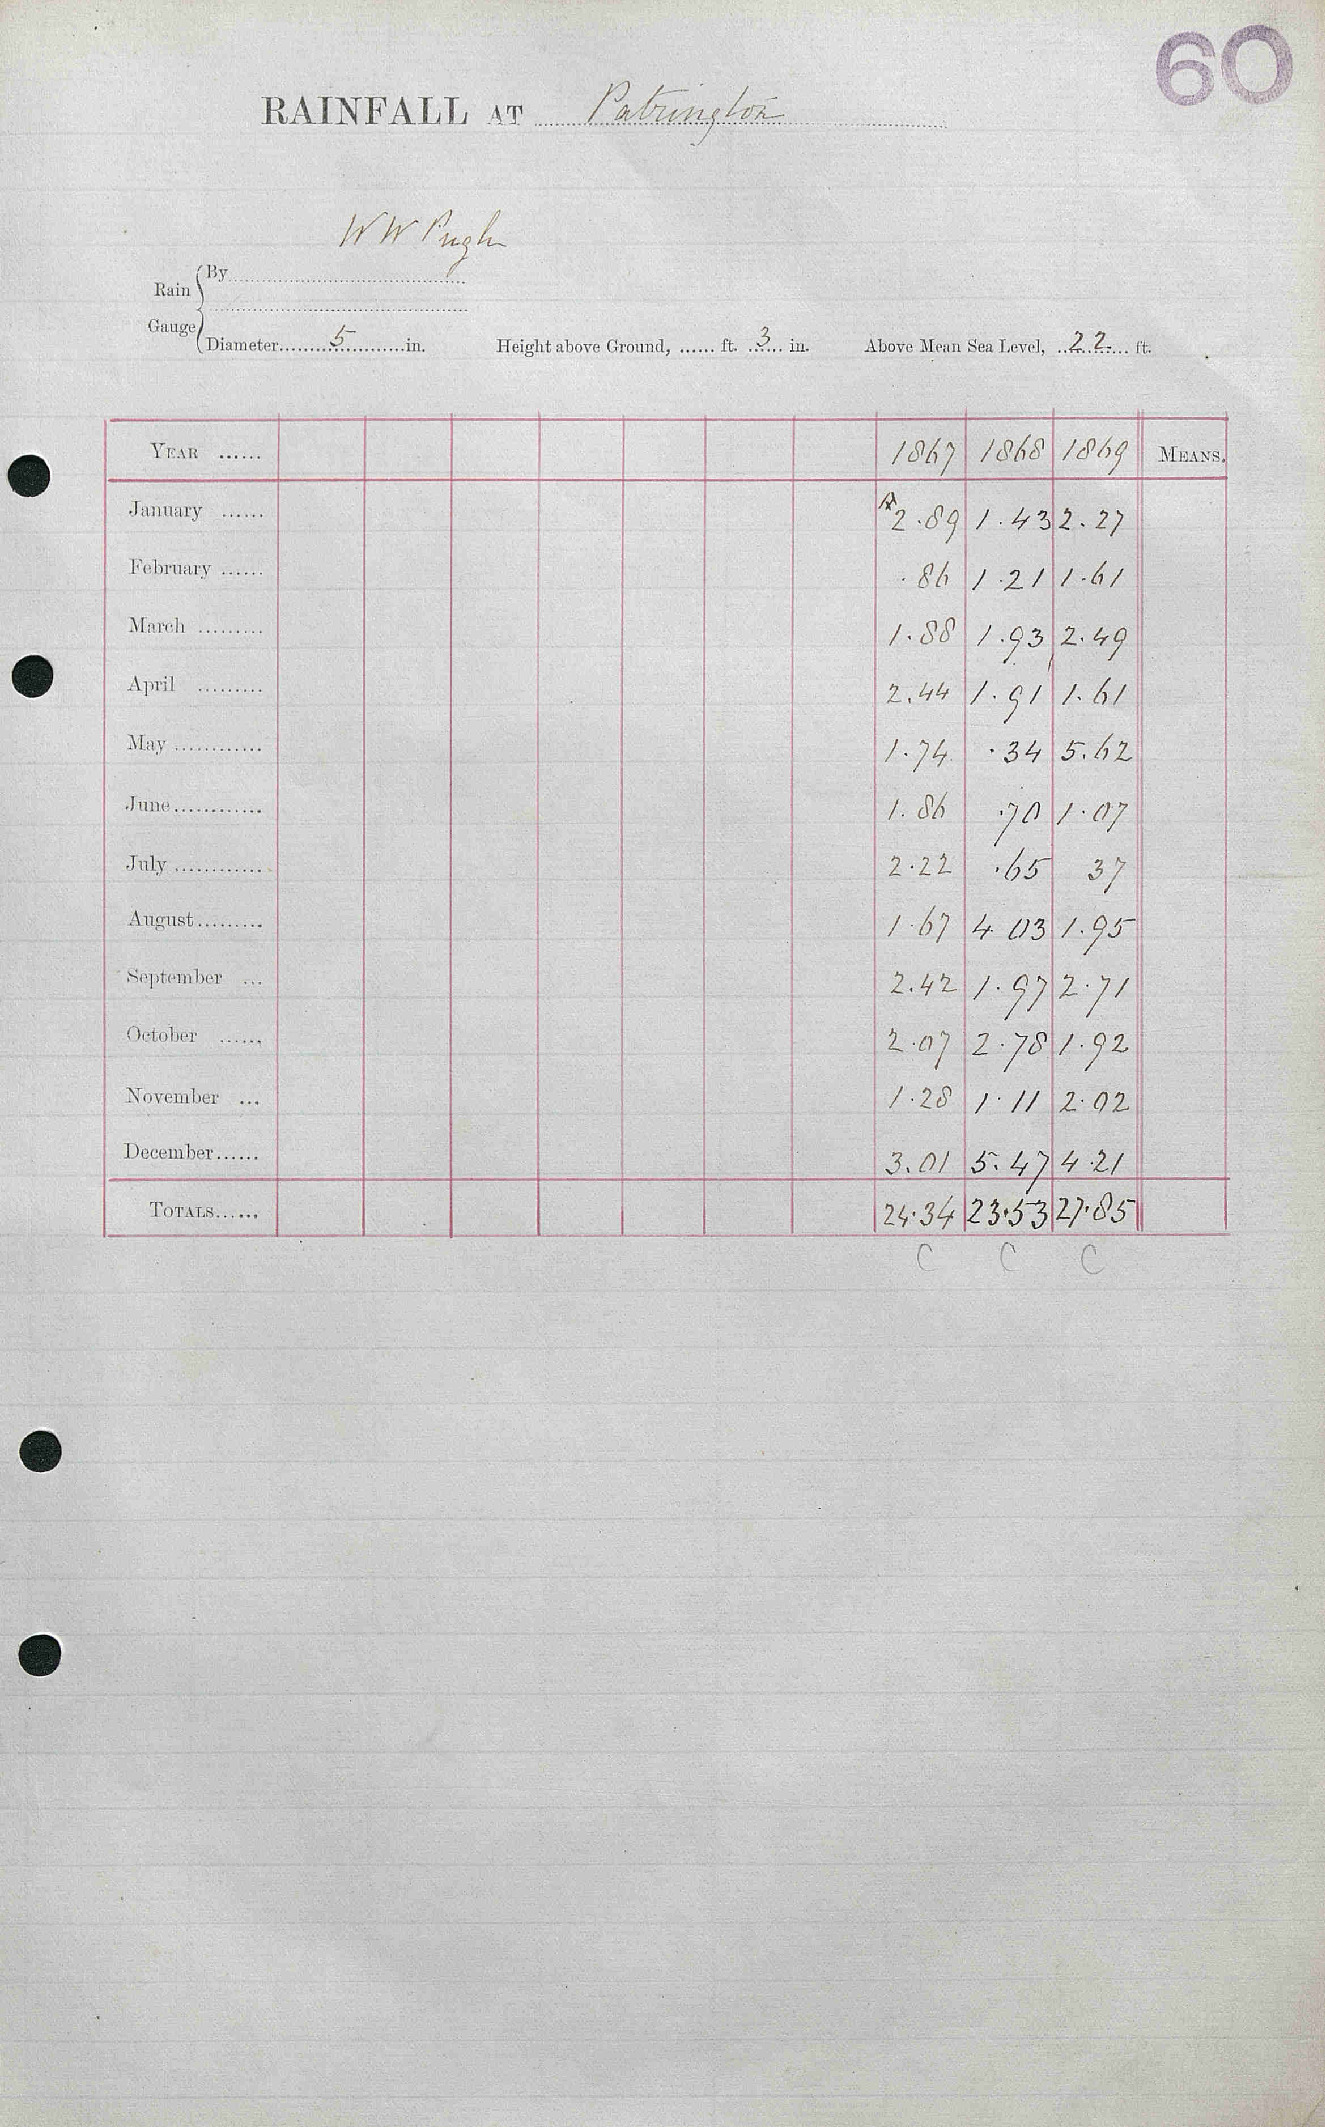 60
RAINFALL AT Patrington
W W Pugh
Rain Gauge { By
Diameter 5 in. Height above Ground, ...... ft. 3 in. Above Mean Sea Level, 22 ft.
YEAR ...... 1867 1868 1869 MEANS.
January ...... 2.89 1.43 2.27
February ...... .86 1.21 1.61
March ......... 1.88 1.93 2.49
April ......... 2.44 1.91 1.61
May ............ 1.74 .34 5.62
June............ 1.86 .70 1.07
July ............ 2.22 .65 37
August......... 1.67 4.03 1.95
September ... 2.42 1.97 2.71
October ...... 2.07 2.78 1.92
November ... 1.28 1.11 2.02
December...... 3.01 5.47 4.21
TOTALS...... 24.34 23.53 27.85
C C C